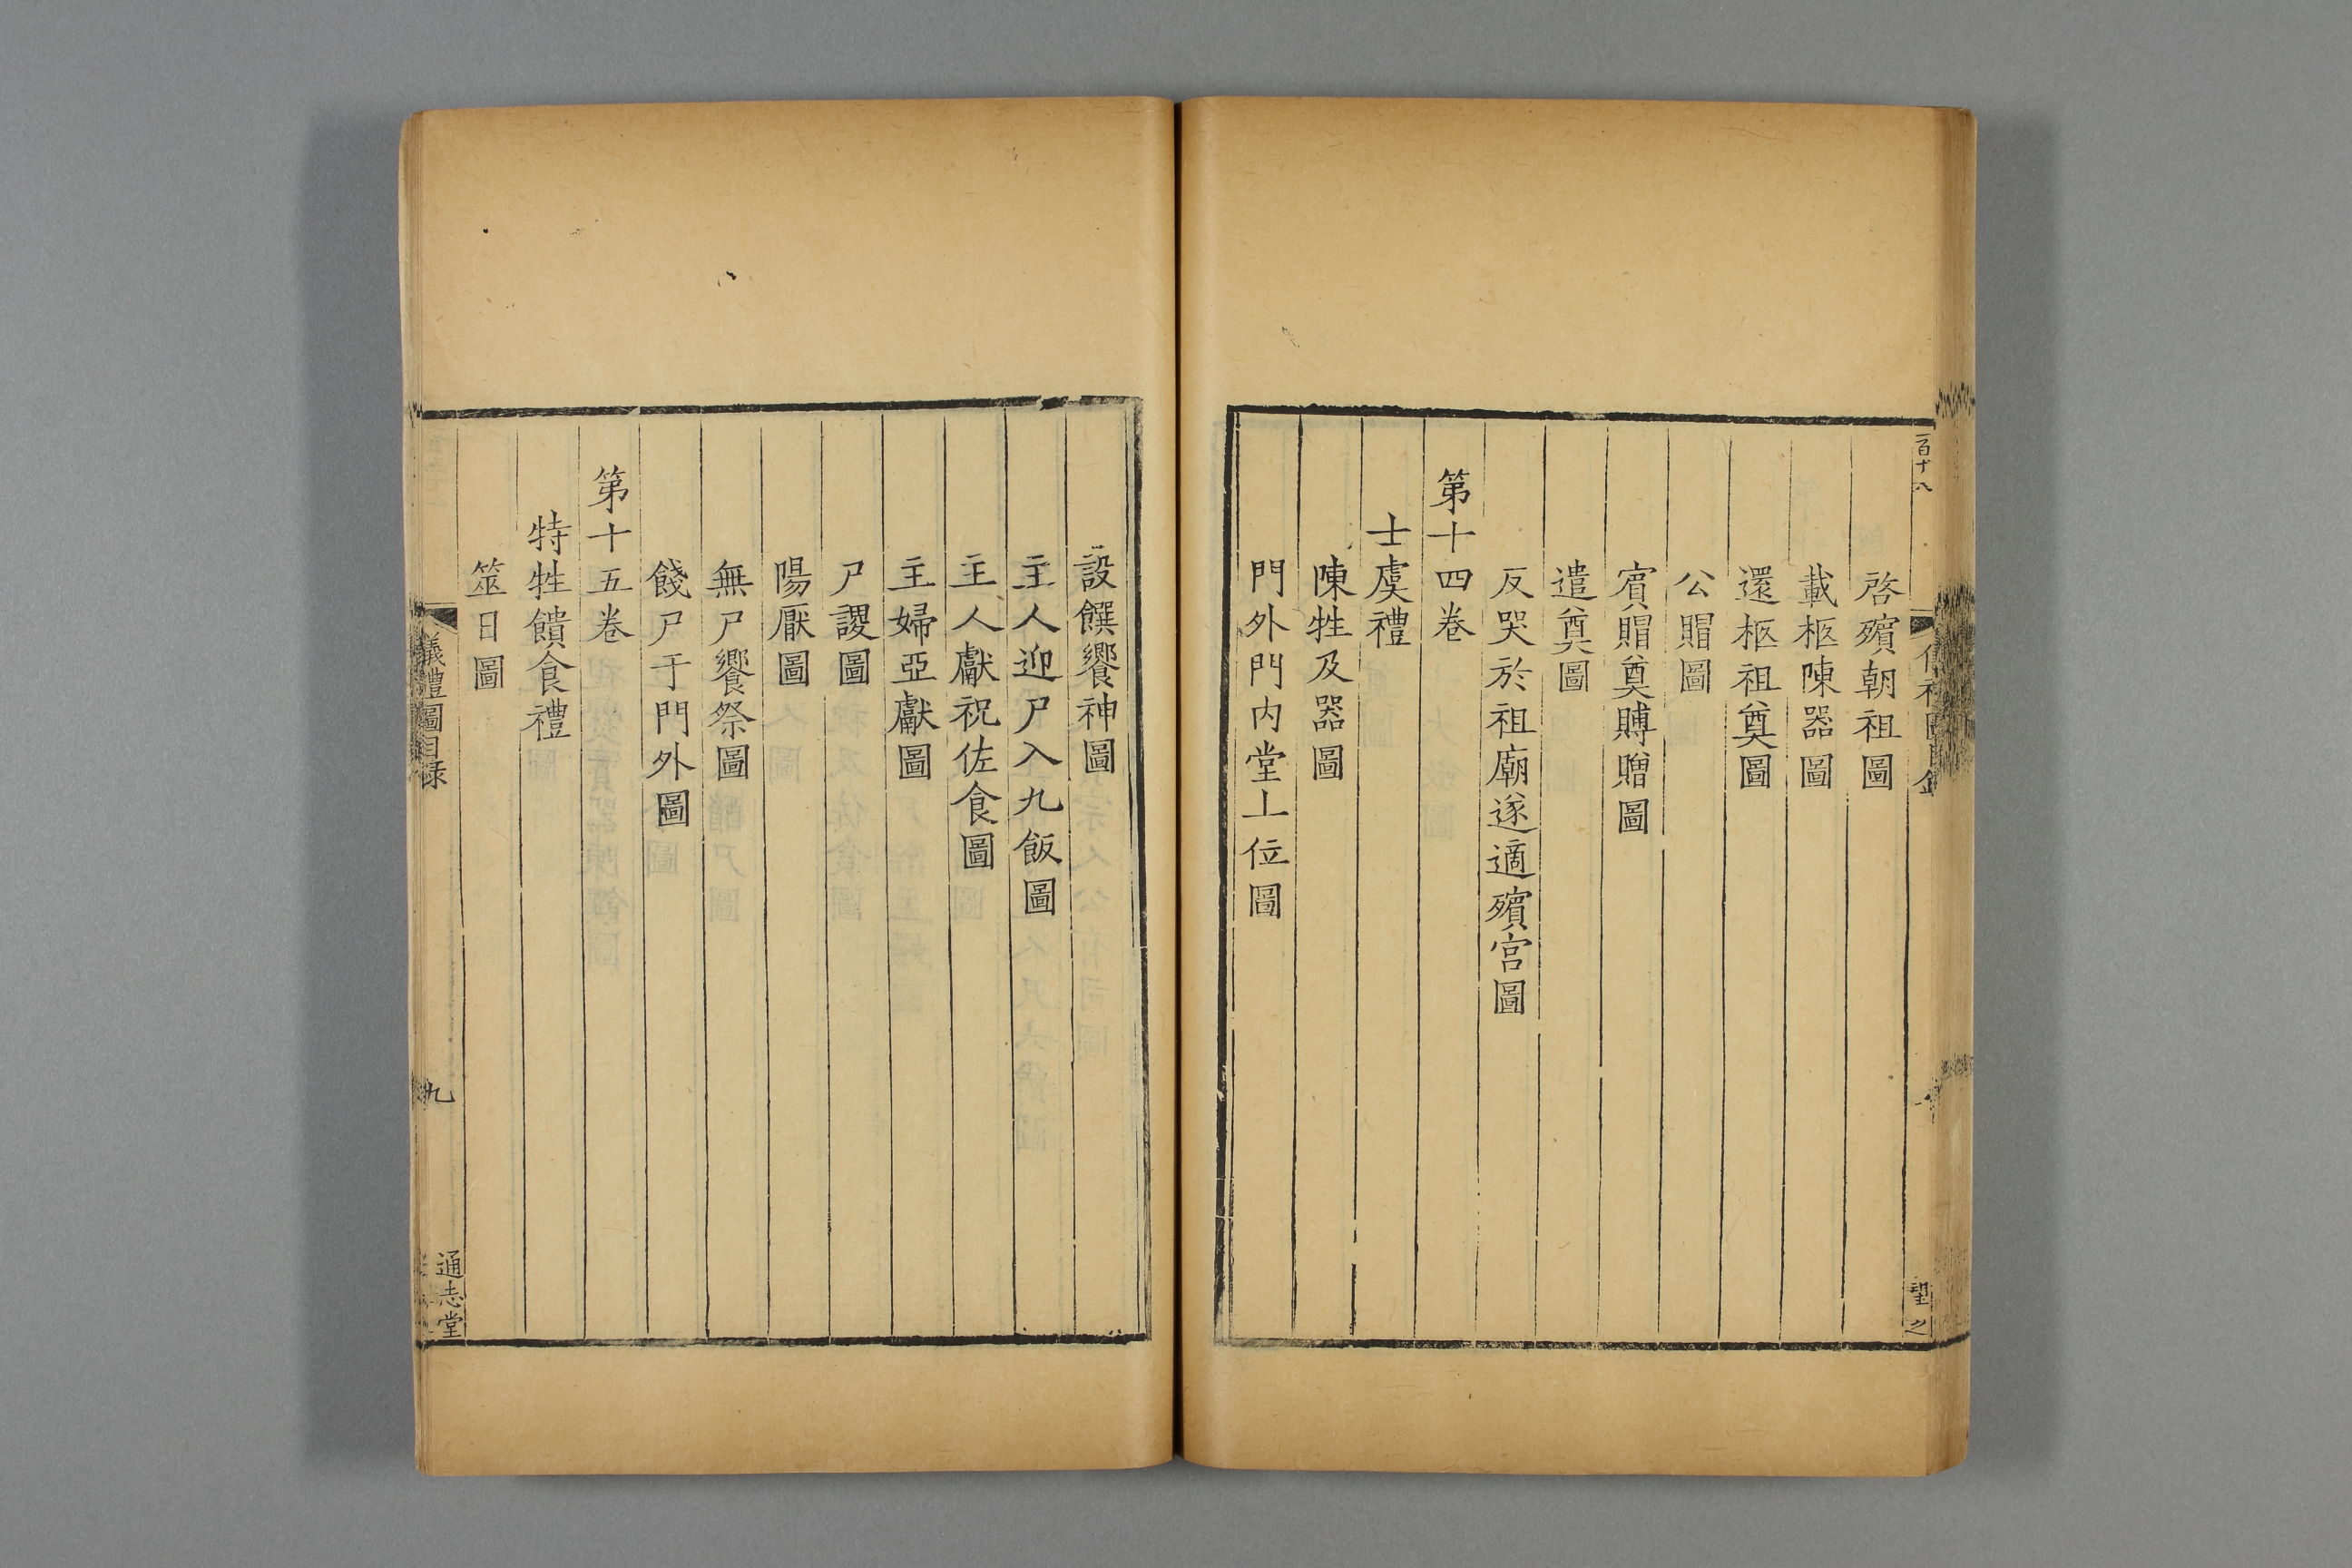 百十八
啓殯朝祖圖
載柩陳器圖
還柩祖奠圖
公賵圖
賔賵奠賻贈圖
遣奠圖
反哭於祖廟遂適殯宫圖
第十四卷
士虞禮
陳牲及器圖
門外門内堂上位圖
望之
設饌饗神圖
主人迎尸入九飯圖
主人獻祝佐食圖
主婦亞獻圖
尸謖圖
陽厭圖
無尸饗祭圖
餞尸于門外圖
第十五卷
特牲饋食禮
筮日圖
儀禮圖目録
九
通志堂